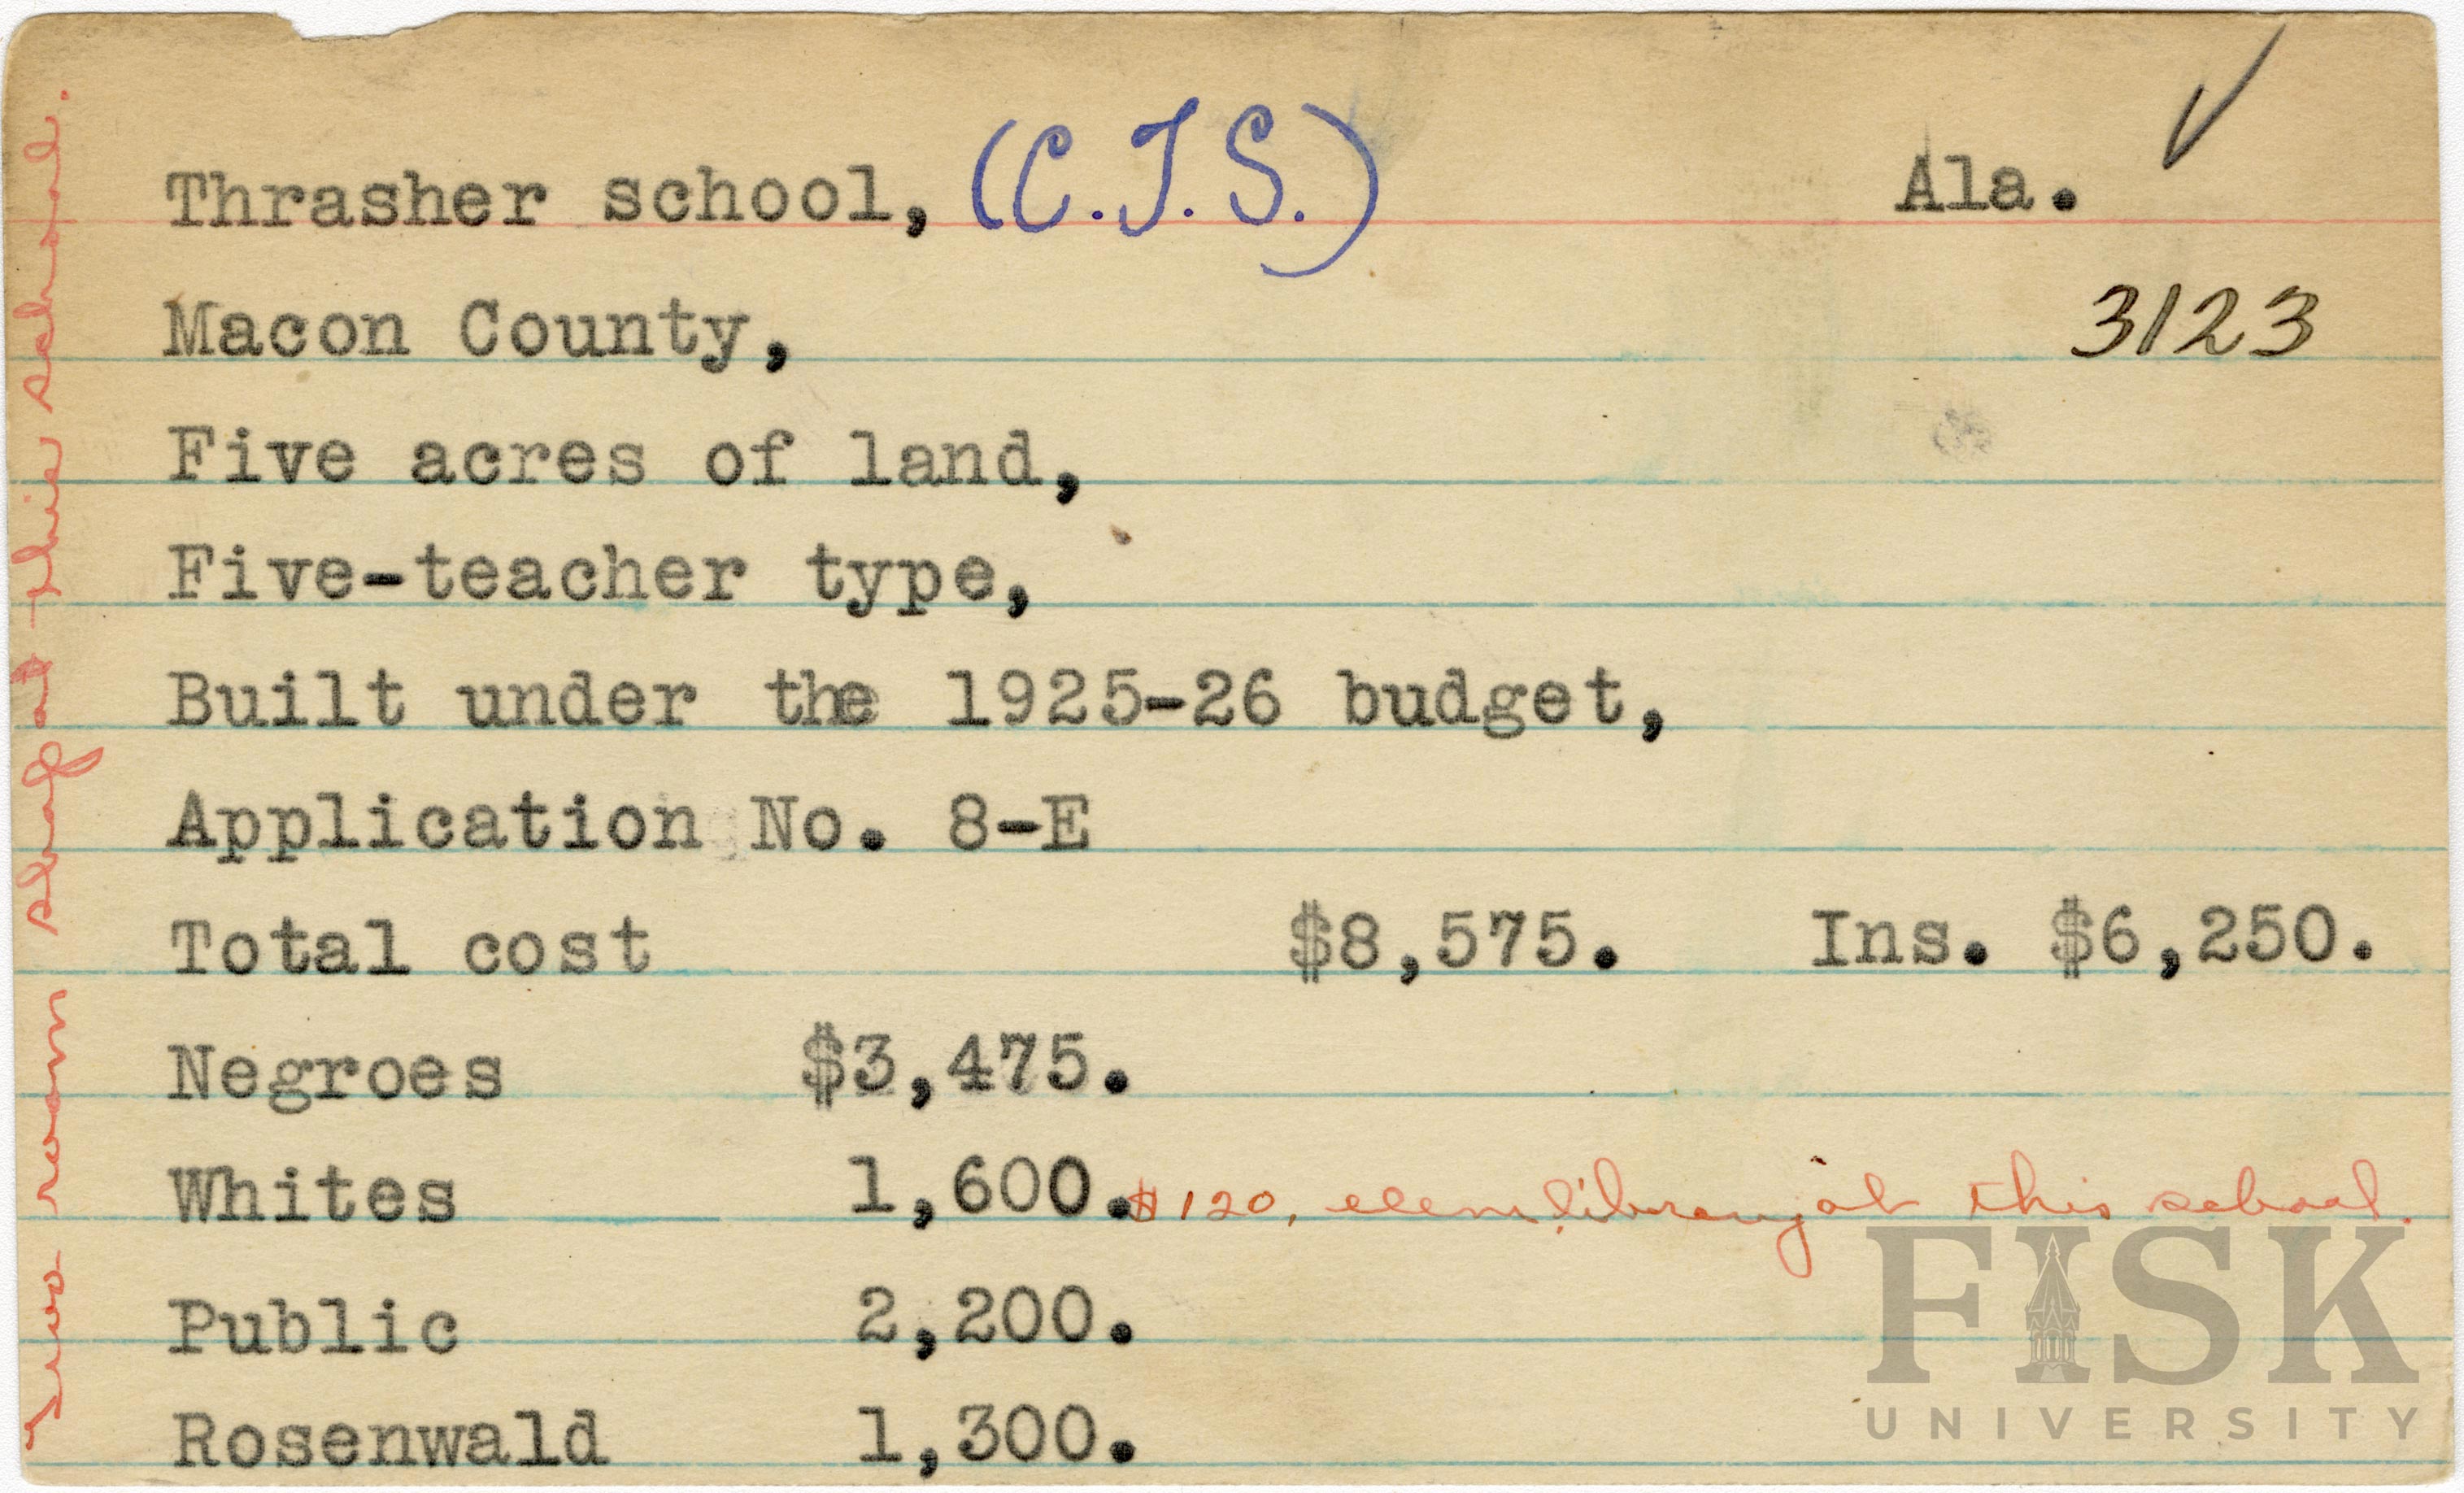 Thrasher school, (C.T.S.) Ala.
Macon County, 3123
Five acres of land,
Five-teacher type,
Built under the 1925-26 budget,
Application No. 8-E
Total cost $8,575. Ins. $6,250.
Negroes $3,475.
Whites 1,600. $120. elem. library at this school.
Public 2,200.
Rosenwald 1,300.
Two room shop at this school.
FISK
UNIVERSITY